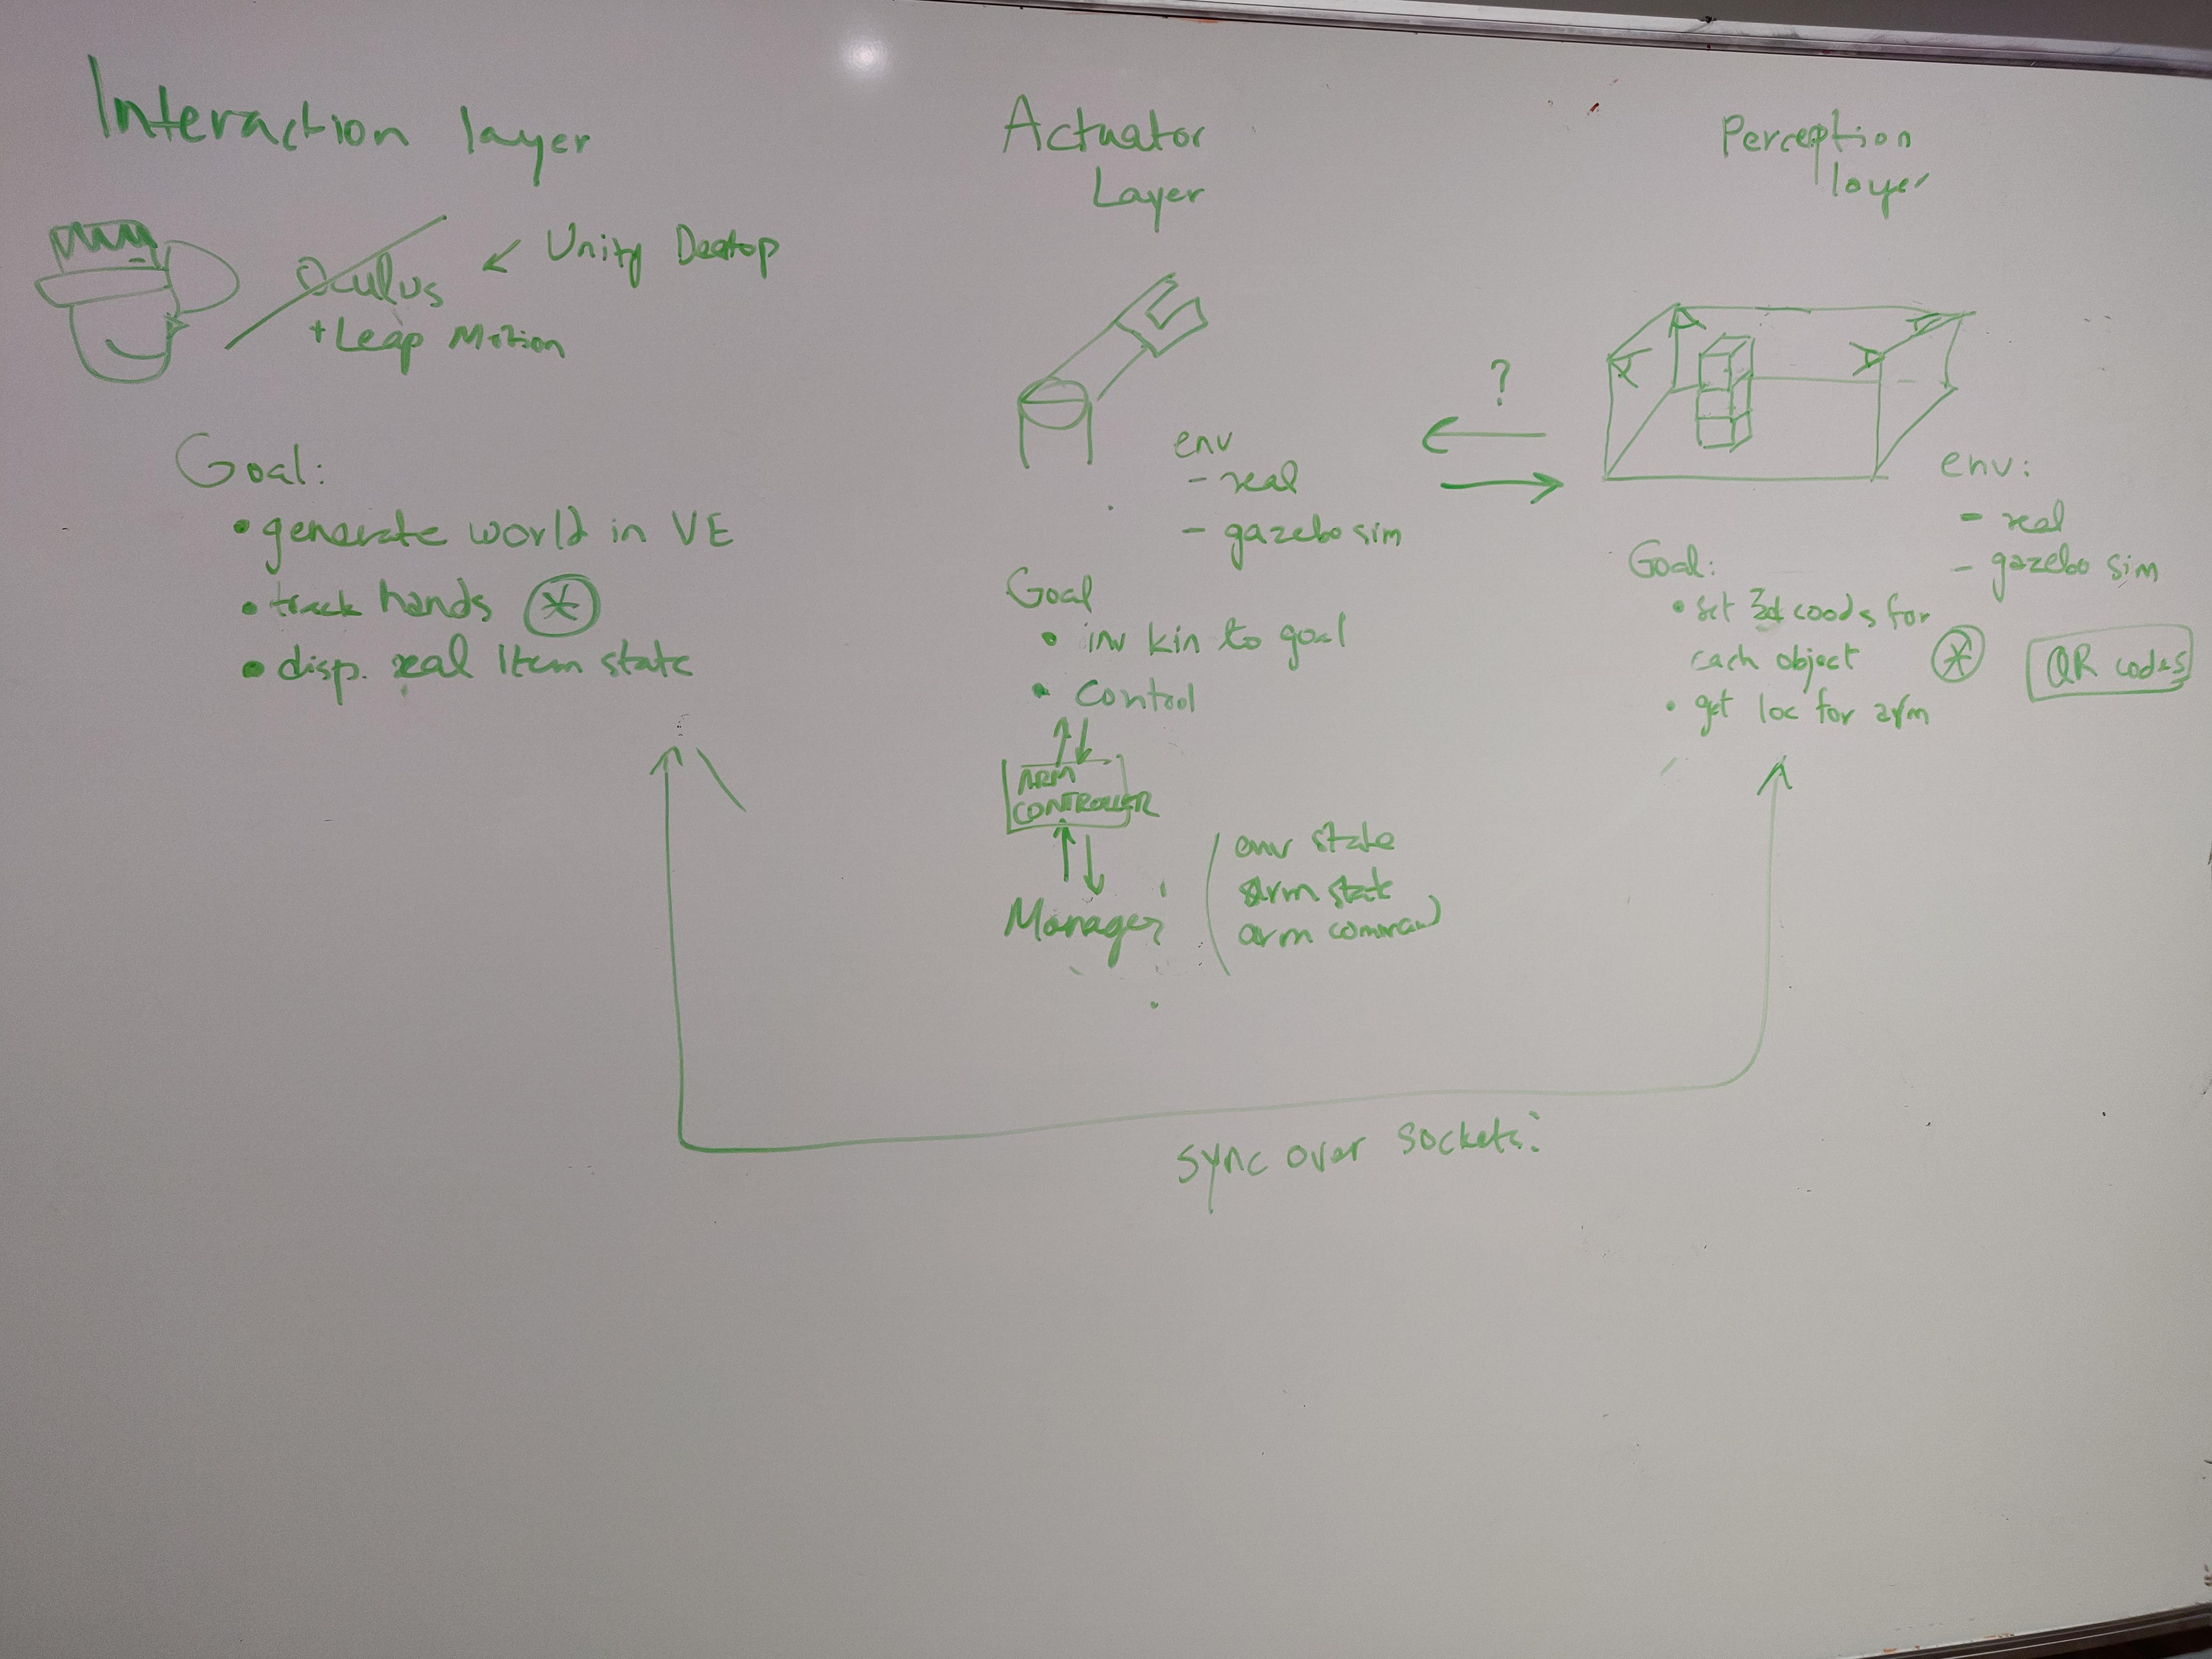 Interaction layer
Oculus
+ Leap Motion
← Unity Desktop
Goal:
• generate world in VE
• track hands *
• disp. real item state
Actuator
Layer
env
- real
- gazebo sim
Goal
• inv kin to goal
• control
ARM
CONTROLLER
Manager
env state
arm state
arm command
?
Perception
layer
env:
- real
- gazebo sim
Goal:
• 3d coods for
each object *
• get loc for arm
QR codes
sync over sockets: